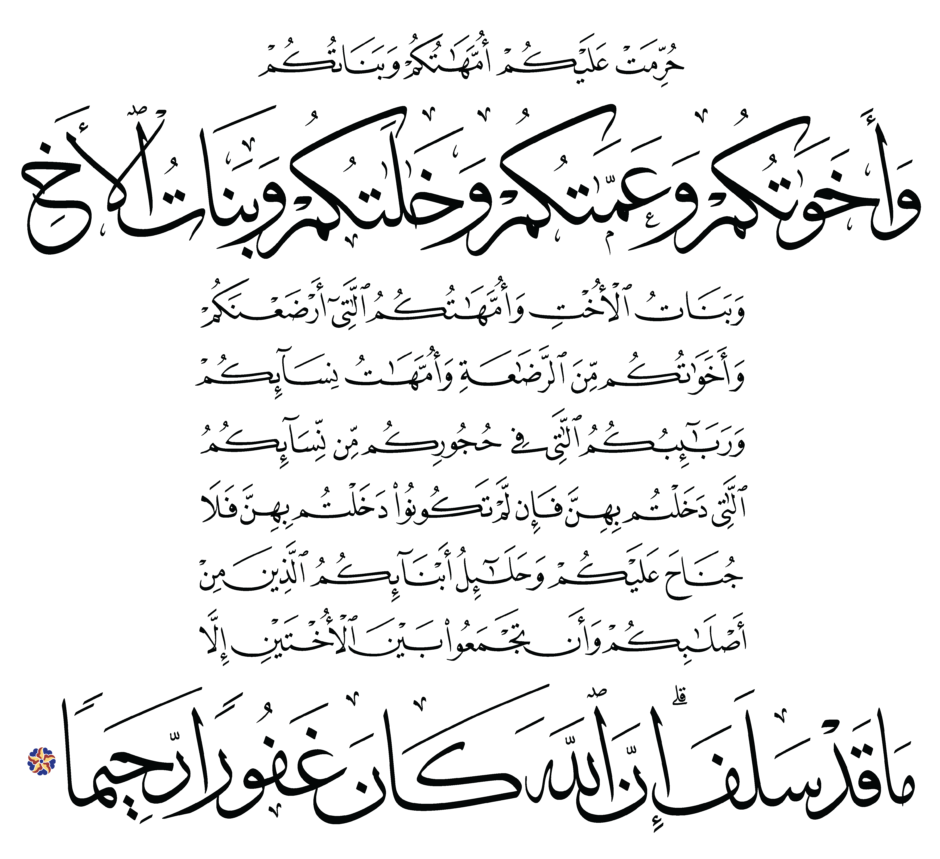 حُرِّمَتْ عَلَيْكُمْ أُمَّهَٰتُكُمْ وَبَنَاتُكُمْ
وَأَخَوَٰتُكُمْ وَعَمَّٰتُكُمْ وَخَٰلَٰتُكُمْ وَبَنَاتُ ٱلْأَخِ
وَبَنَاتُ ٱلْأُخْتِ وَأُمَّهَٰتُكُمُ ٱلَّٰتِىٓ أَرْضَعْنَكُمْ
وَأَخَوَٰتُكُم مِّنَ ٱلرَّضَٰعَةِ وَأُمَّهَٰتُ نِسَآئِكُمْ
وَرَبَٰٓئِبُكُمُ ٱلَّٰتِى فِى حُجُورِكُم مِّن نِّسَآئِكُمُ
ٱلَّٰتِى دَخَلْتُم بِهِنَّ فَإِن لَّمْ تَكُونُوا۟ دَخَلْتُم بِهِنَّ فَلَا
جُنَاحَ عَلَيْكُمْ وَحَلَٰٓئِلُ أَبْنَآئِكُمُ ٱلَّذِينَ مِنْ
أَصْلَٰبِكُمْ وَأَن تَجْمَعُوا۟ بَيْنَ ٱلْأُخْتَيْنِ إِلَّا
مَا قَدْ سَلَفَ ۗ إِنَّ ٱللَّهَ كَانَ غَفُورًا رَّحِيمًا